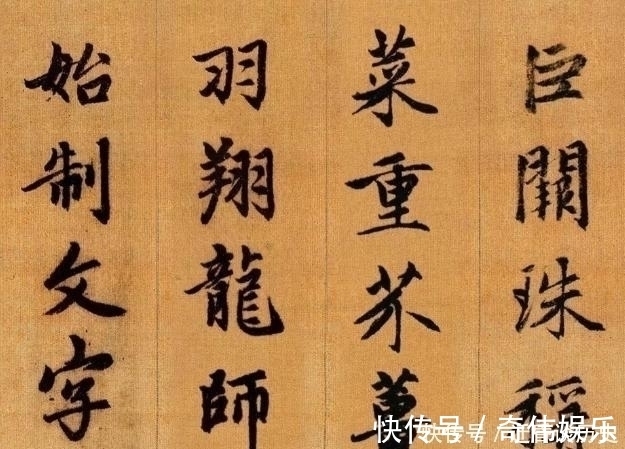 巨闕珠稱
菜重芥薑
羽翔龍師
始制文字
快传号 / 奇伟娱乐